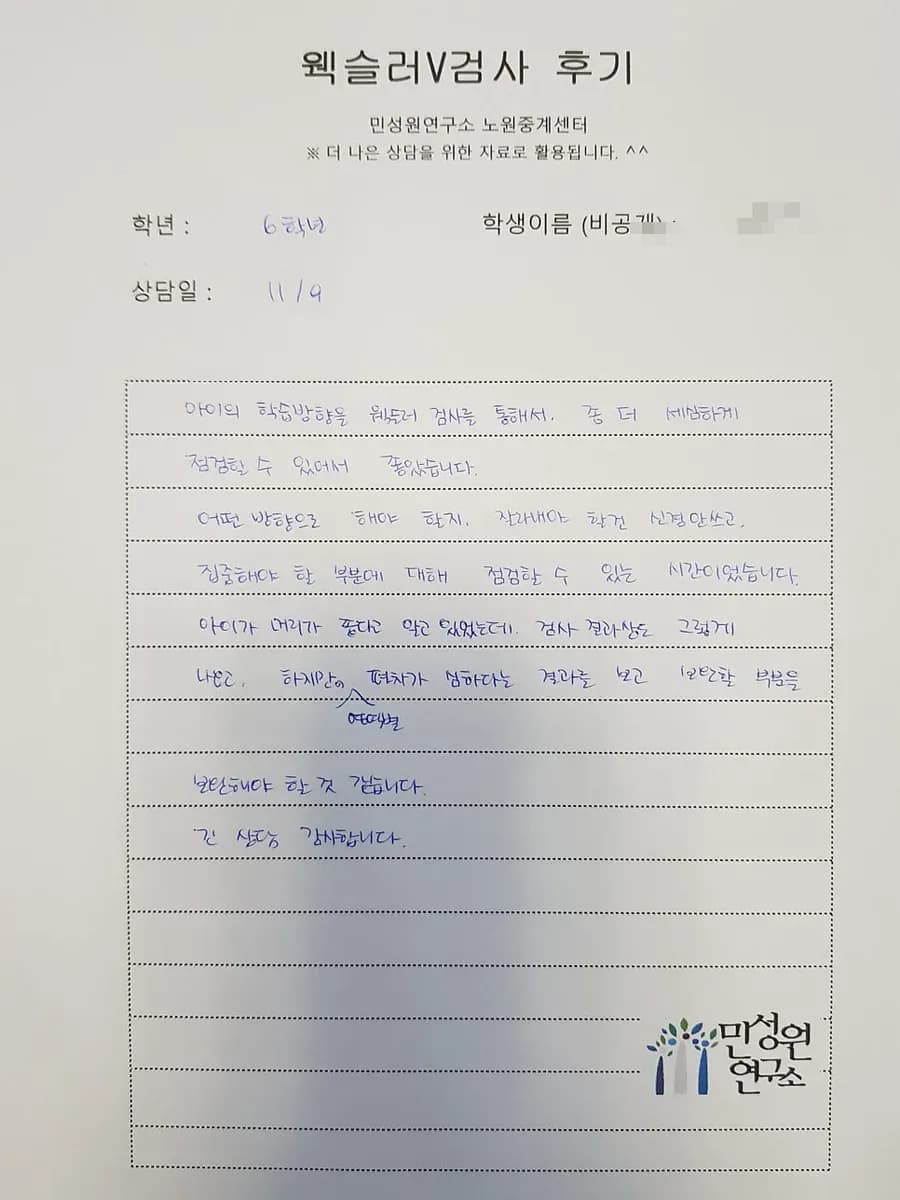 웩슬러V검사 후기
민성원연구소 노원중계센터
※ 더 나은 상담을 위한 자료로 활용됩니다. ^^
학년 : 6학년 학생이름 (비공개) :
상담일 : 11/9
아이의 학습방향을 웩슬러 검사를 통해서. 좀 더 세심하게
점검할 수 있어서 좋았습니다.
어떤 방향으로 해야 할지. 잘라내야 할건 신경안쓰고,
집중해야 할 부분에 대해 점검할 수 있는 시간이었습니다.
아이가 머리가 좋다고 알고 있었는데. 검사 결과상도 그렇게
나오고. 하지만 편차가 심하다는 결과를 보고 보완할 부분을
보완해야 할 것 같습니다.
긴 상담 감사합니다.
민성원
연구소